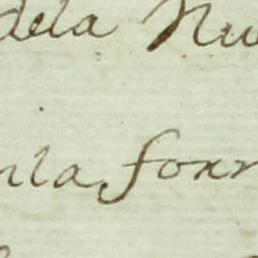 dela Nu
nla forr